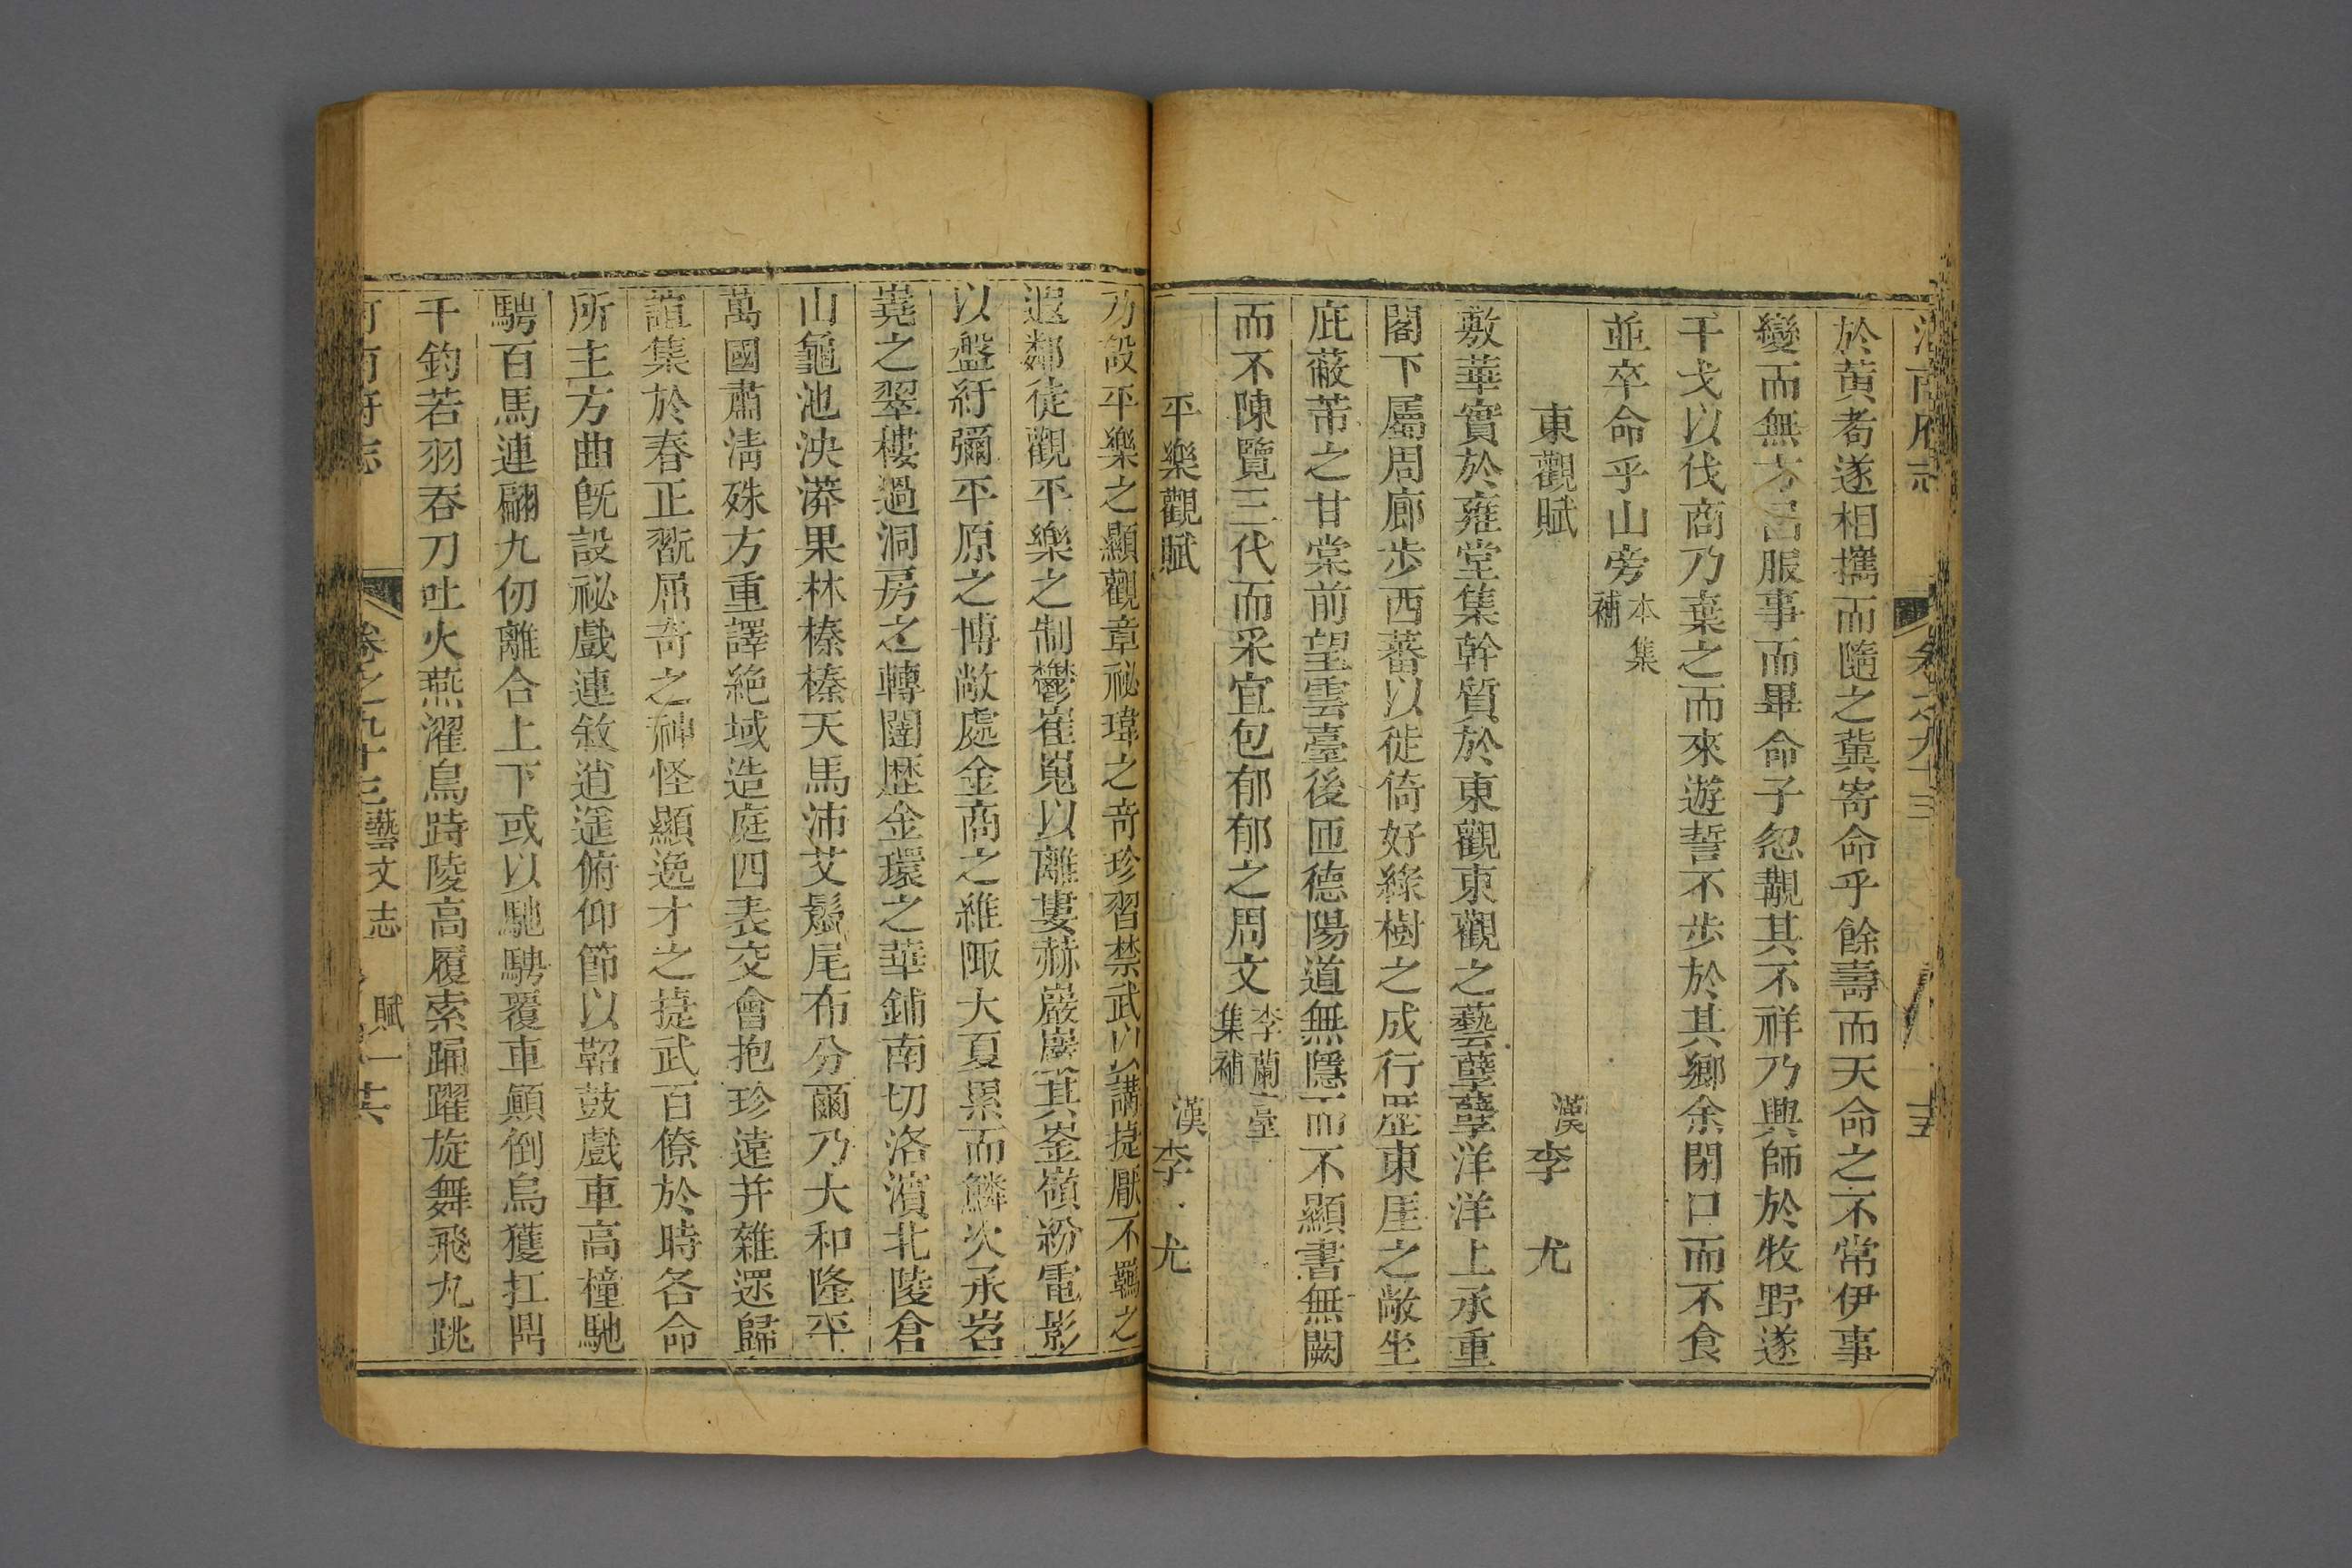 於黃耇遂相攜而隨之冀寄命乎餘壽而天命之不常伊事
變而無方昌服事而畢命子忽覯其不祥乃興師於牧野遂
干戈以伐商乃棄之而來遊誓不步於其鄉余閉口而不食
並卒命乎山旁本集補
東觀賦 漢 李 尤
敷華實於雍堂集幹質於東觀東觀之藝孽孽洋洋上承重
閣下屬周廊步西蕃以徙倚好綠樹之成行歷東厓之敞坐
庇蔽芾之甘棠前望雲臺後匝德陽道無隱而不顯書無闕
而不陳覽三代而采宜包郁郁之周文李蘭臺集補
平樂觀賦 漢 李 尤
乃設平樂之顯觀章祕瑋之奇珍習禁武以講捷厭不羈之
遐鄰徒觀平樂之制鬱崔嵬以離婁赫巖巖其崟嶺紛電影
以盤紆彌平原之博敞處金商之維陬大夏累而鱗次承岧
嶤之翠樓過洞房之轉闥歷金環之華鋪南切洛濱北陵倉
山龜池泱漭果林榛榛天馬沛艾鬣尾布分爾乃大和隆平
萬國肅淸殊方重譯絕域造庭四表交會抱珍遠并雜遝歸
誼集於春正翫屈奇之神怪顯逸才之捷武百僚於時各命
所主方曲旣設祕戲連敘逍遙俯仰節以鞀鼓戲車高橦馳
騁百馬連翩九仞離合上下或以馳騁覆車顚倒烏獲扛鼎
千鈞若羽吞刀吐火燕濯烏跱陵高履索踊躍旋舞飛丸跳
河南府志 卷之九十三 藝文志 賦一 共